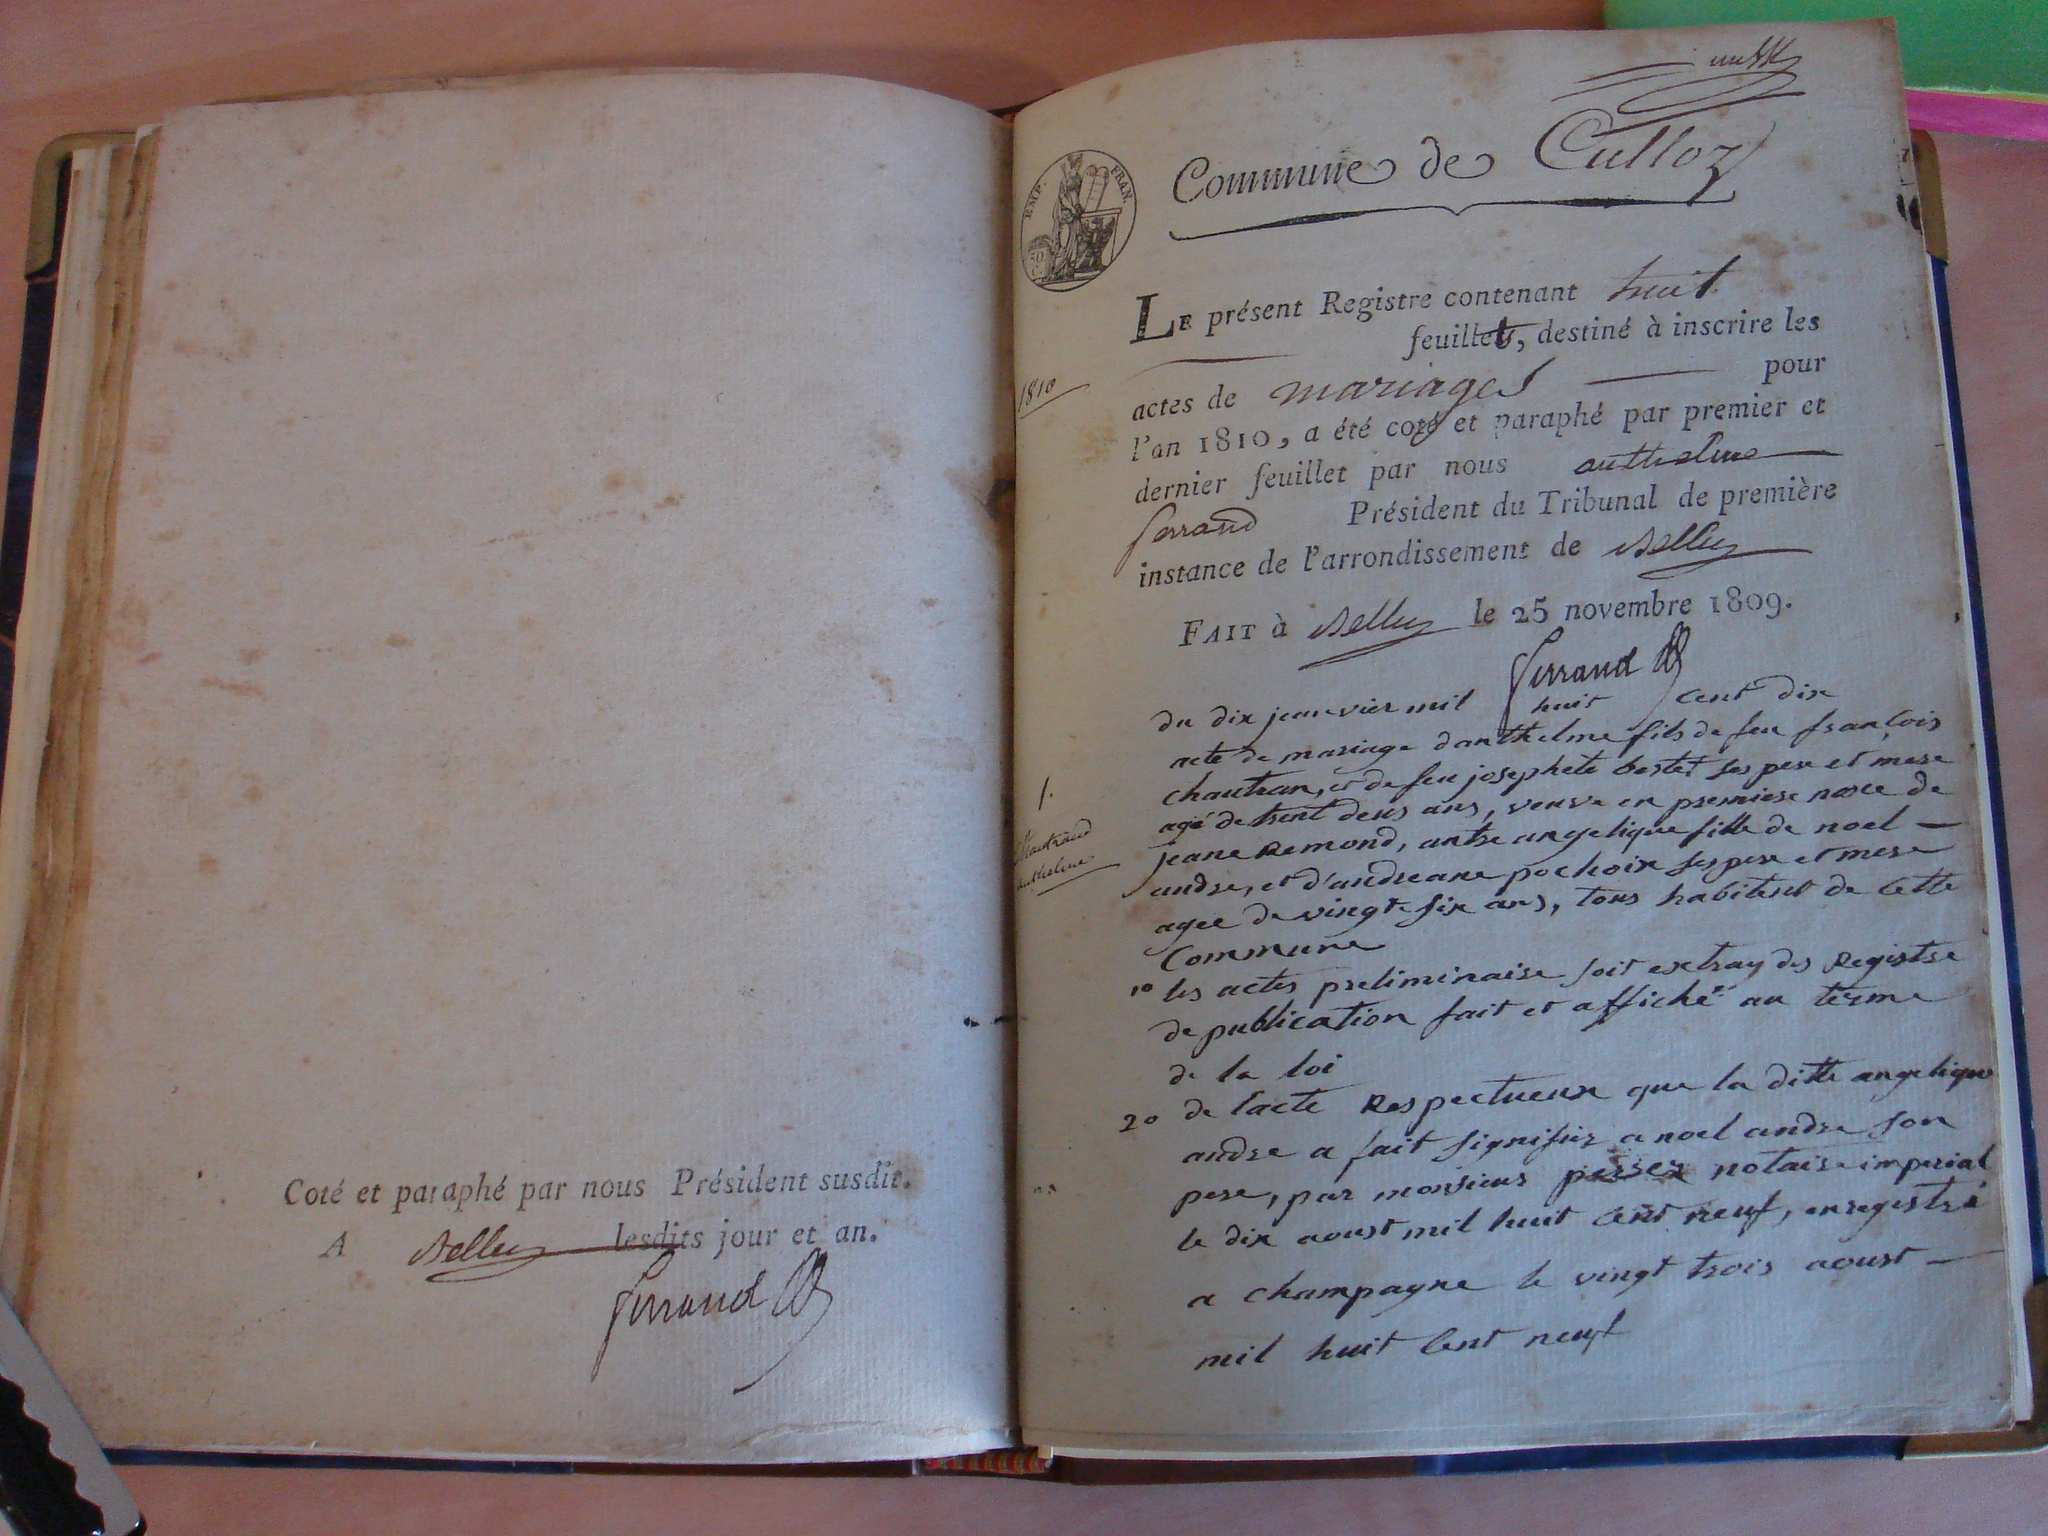 Coté et paraphé par nous Président susdit.
A Belley lesdits jour et an.
Ferrand
EMP. FRAN.
50
C.
Commune de Culloz
Le présent Registre contenant huit
feuillets, destiné à inscrire les
1810
actes de mariages pour
l'an 1810, a été coté et paraphé par premier et
dernier feuillet par nous anthelme
ferrand Président du Tribunal de première
instance de l'arrondissement de Belley
FAIT à Belley le 25 novembre 1809.
Ferrand
du dix jeanvier mil huit cent dix
acte de mariage danthelme fils de feu françois
chautran, et de feu josephete bertet ses pere et mere
1.
agé de trent deus ans, veuve en premiere noce de
Chautrand
jeane Remond, antre angelique fille de noel
anthelme
andre, et d'andreane pochoix ses pere et mere
agee de vingt six ans, tous habitent de cette
Commune
1o les actes preliminaire soit extray des Registre
de publication fait et affiché au terme
de la loi
2o de lacte Respectueux que la ditte angelique
andre a fait signifier a noel andre son
pere, par monsieur notaire imperial
le dix aoust mil huit cent neuf, enregistré
a champagne le vingt trois aoust
mil huit cent neuf